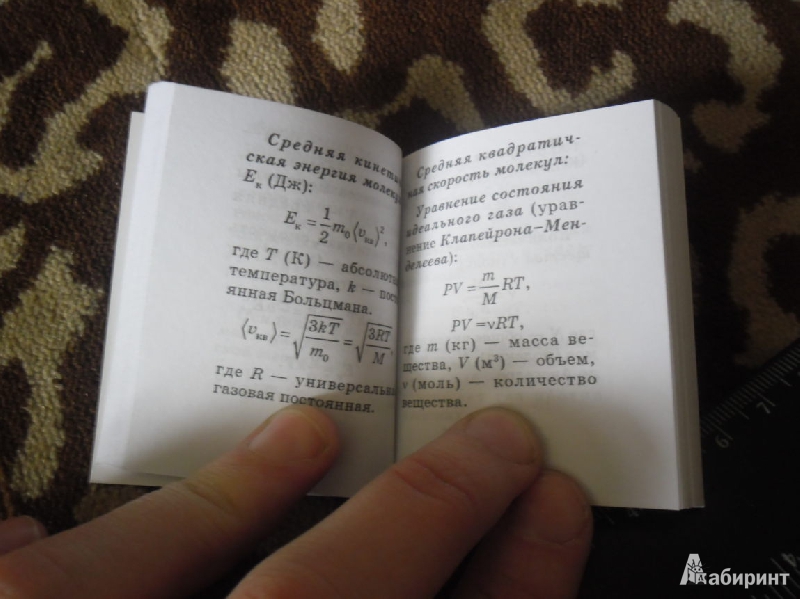 Средняя кинети-
ская энергия молекул
Eк (Дж):
Eк = 1/2 m₀⟨vкв⟩²,
где T (К) — абсолютн
температура, k — пост
янная Больцмана.
⟨vкв⟩ = √(3kT/m₀) = √(3RT/M),
где R — универсальн
газовая постоянная.
Средняя квадратич-
ная скорость молекул:
Уравнение состояния
идеального газа (урав-
нение Клапейрона–Мен-
делеева):
PV = m/M RT,
PV = νRT,
где m (кг) — масса ве-
щества, V (м³) — объем,
ν (моль) — количество
вещества.
6
7
4
Лабиринт